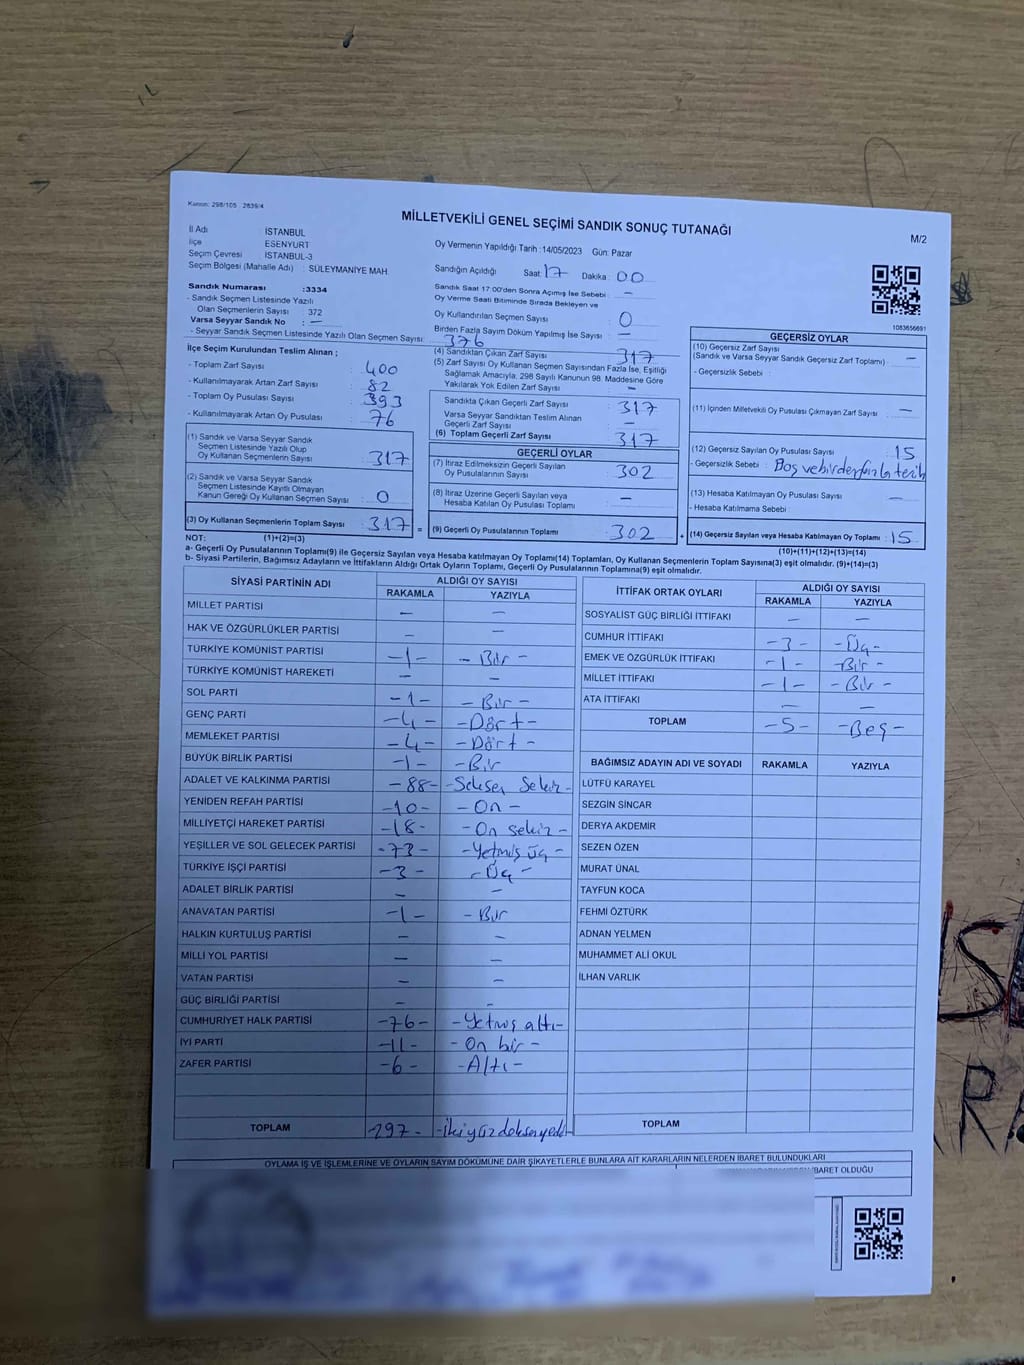 Kanun: 298/105 2839/4
MİLLETVEKİLİ GENEL SEÇİMİ SANDIK SONUÇ TUTANAĞI
M/2
İl Adı İSTANBUL
İlçe ESENYURT
Seçim Çevresi İSTANBUL-3
Seçim Bölgesi (Mahalle Adı) : SÜLEYMANİYE MAH.
Sandık Numarası :3334
- Sandık Seçmen Listesinde Yazılı
Olan Seçmenlerin Sayısı 372
Varsa Seyyar Sandık No : —
- Seyyar Sandık Seçmen Listesinde Yazılı Olan Seçmen Sayısı : 376
Oy Vermenin Yapıldığı Tarih :14/05/2023 Gün: Pazar
Sandığın Açıldığı Saat: 17 Dakika : 00
Sandık Saat 17:00'den Sonra Açımış İse Sebebi : —
Oy Verme Saati Bitiminde Sırada Bekleyen ve
Oy Kullandırılan Seçmen Sayısı : 0
Birden Fazla Sayım Döküm Yapılmış İse Sayısı : —
1083656691
İlçe Seçim Kurulundan Teslim Alınan ;
- Toplam Zarf Sayısı : 400
- Kullanılmayarak Artan Zarf Sayısı : 82
- Toplam Oy Pusulası Sayısı : 393
- Kullanılmayarak Artan Oy Pusulası : 76
(1) Sandık ve Varsa Seyyar Sandık
Seçmen Listesinde Yazılı Olup
Oy Kullanan Seçmenlerin Sayısı : 317
(2) Sandık ve Varsa Seyyar Sandık
Seçmen Listesinde Kayıtlı Olmayan
Kanun Gereği Oy Kullanan Seçmen Sayısı : 0
(3) Oy Kullanan Seçmenlerin Toplam Sayısı : 317
(4) Sandıktan Çıkan Zarf Sayısı : 317
(5) Zarf Sayısı Oy Kullanan Seçmen Sayısından Fazla İse, Eşitliği
Sağlamak Amacıyla, 298 Sayılı Kanunun 98. Maddesine Göre
Yakılarak Yok Edilen Zarf Sayısı : —
Sandıkta Çıkan Geçerli Zarf Sayısı : 317
Varsa Seyyar Sandıktan Teslim Alınan
Geçerli Zarf Sayısı : —
(6) Toplam Geçerli Zarf Sayısı : 317
GEÇERLİ OYLAR
(7) İtiraz Edilmeksizin Geçerli Sayılan
Oy Pusulalarının Sayısı : 302
(8) İtiraz Üzerine Geçerli Sayılan veya
Hesaba Katılan Oy Pusulası Toplamı : —
= (9) Geçerli Oy Pusulalarının Toplamı : 302
GEÇERSİZ OYLAR
(10) Geçersiz Zarf Sayısı
(Sandık ve Varsa Seyyar Sandık Geçersiz Zarf Toplamı) : —
- Geçersizlik Sebebi :
(11) İçinden Milletvekili Oy Pusulası Çıkmayan Zarf Sayısı : —
(12) Geçersiz Sayılan Oy Pusulası Sayısı : 15
- Geçersizlik Sebebi : Boş ve birden fazla tercih
(13) Hesaba Katılmayan Oy Pusulası Sayısı : —
- Hesaba Katılmama Sebebi :
+ (14) Geçersiz Sayılan veya Hesaba Katılmayan Oy Toplamı : 15
NOT: (1)+(2)=(3) (10)+(11)+(12)+(13)=(14)
a- Geçerli Oy Pusulalarının Toplamı(9) ile Geçersiz Sayılan veya Hesaba katılmayan Oy Toplamı(14) Toplamları, Oy Kullanan Seçmenlerin Toplam Sayısına(3) eşit olmalıdır. (9)+(14)=(3)
b- Siyasi Partilerin, Bağımsız Adayların ve İttifakların Aldığı Ortak Oyların Toplamı, Geçerli Oy Pusulalarının Toplamına(9) eşit olmalıdır.
SİYASİ PARTİNİN ADI ALDIĞI OY SAYISI
RAKAMLA YAZIYLA
MİLLET PARTİSİ — —
HAK VE ÖZGÜRLÜKLER PARTİSİ — —
TÜRKİYE KOMÜNİST PARTİSİ -1- - Bir -
TÜRKİYE KOMÜNİST HAREKETİ — —
SOL PARTİ -1- - Bir -
GENÇ PARTİ -4- -Dört-
MEMLEKET PARTİSİ -4- -Dört -
BÜYÜK BİRLİK PARTİSİ -1- -Bir
ADALET VE KALKINMA PARTİSİ -88- -Seksen Sekiz-
YENİDEN REFAH PARTİSİ -10- - On -
MİLLİYETÇİ HAREKET PARTİSİ -18- -On sekiz -
YEŞİLLER VE SOL GELECEK PARTİSİ -73- -Yetmiş üç -
TÜRKİYE İŞÇİ PARTİSİ -3- - Üç -
ADALET BİRLİK PARTİSİ — —
ANAVATAN PARTİSİ -1- - Bir
HALKIN KURTULUŞ PARTİSİ — —
MİLLİ YOL PARTİSİ — —
VATAN PARTİSİ — —
GÜÇ BİRLİĞİ PARTİSİ — —
CUMHURİYET HALK PARTİSİ -76- -Yetmiş altı-
İYİ PARTİ -11- - On bir -
ZAFER PARTİSİ -6- -Altı-
TOPLAM 297- -İkiyüzdoksanyedi-
İTTİFAK ORTAK OYLARI ALDIĞI OY SAYISI
RAKAMLA YAZIYLA
SOSYALİST GÜÇ BİRLİĞİ İTTİFAKI — —
CUMHUR İTTİFAKI -3- -Üç-
EMEK VE ÖZGÜRLÜK İTTİFAKI -1- -Bir -
MİLLET İTTİFAKI -1- - Bir -
ATA İTTİFAKI — —
TOPLAM -5- -Beş-
BAĞIMSIZ ADAYIN ADI VE SOYADI RAKAMLA YAZIYLA
LÜTFÜ KARAYEL
SEZGİN SİNCAR
DERYA AKDEMİR
SEZEN ÖZEN
MURAT ÜNAL
TAYFUN KOCA
FEHMİ ÖZTÜRK
ADNAN YELMEN
MUHAMMET ALİ OKUL
İLHAN VARLIK
TOPLAM
OYLAMA İŞ VE İŞLEMLERİNE VE OYLARIN SAYIM DÖKÜMÜNE DAİR ŞİKAYETLERLE BUNLARA AİT KARARLARIN NELERDEN İBARET BULUNDUKLARI
İBARET OLDUĞU